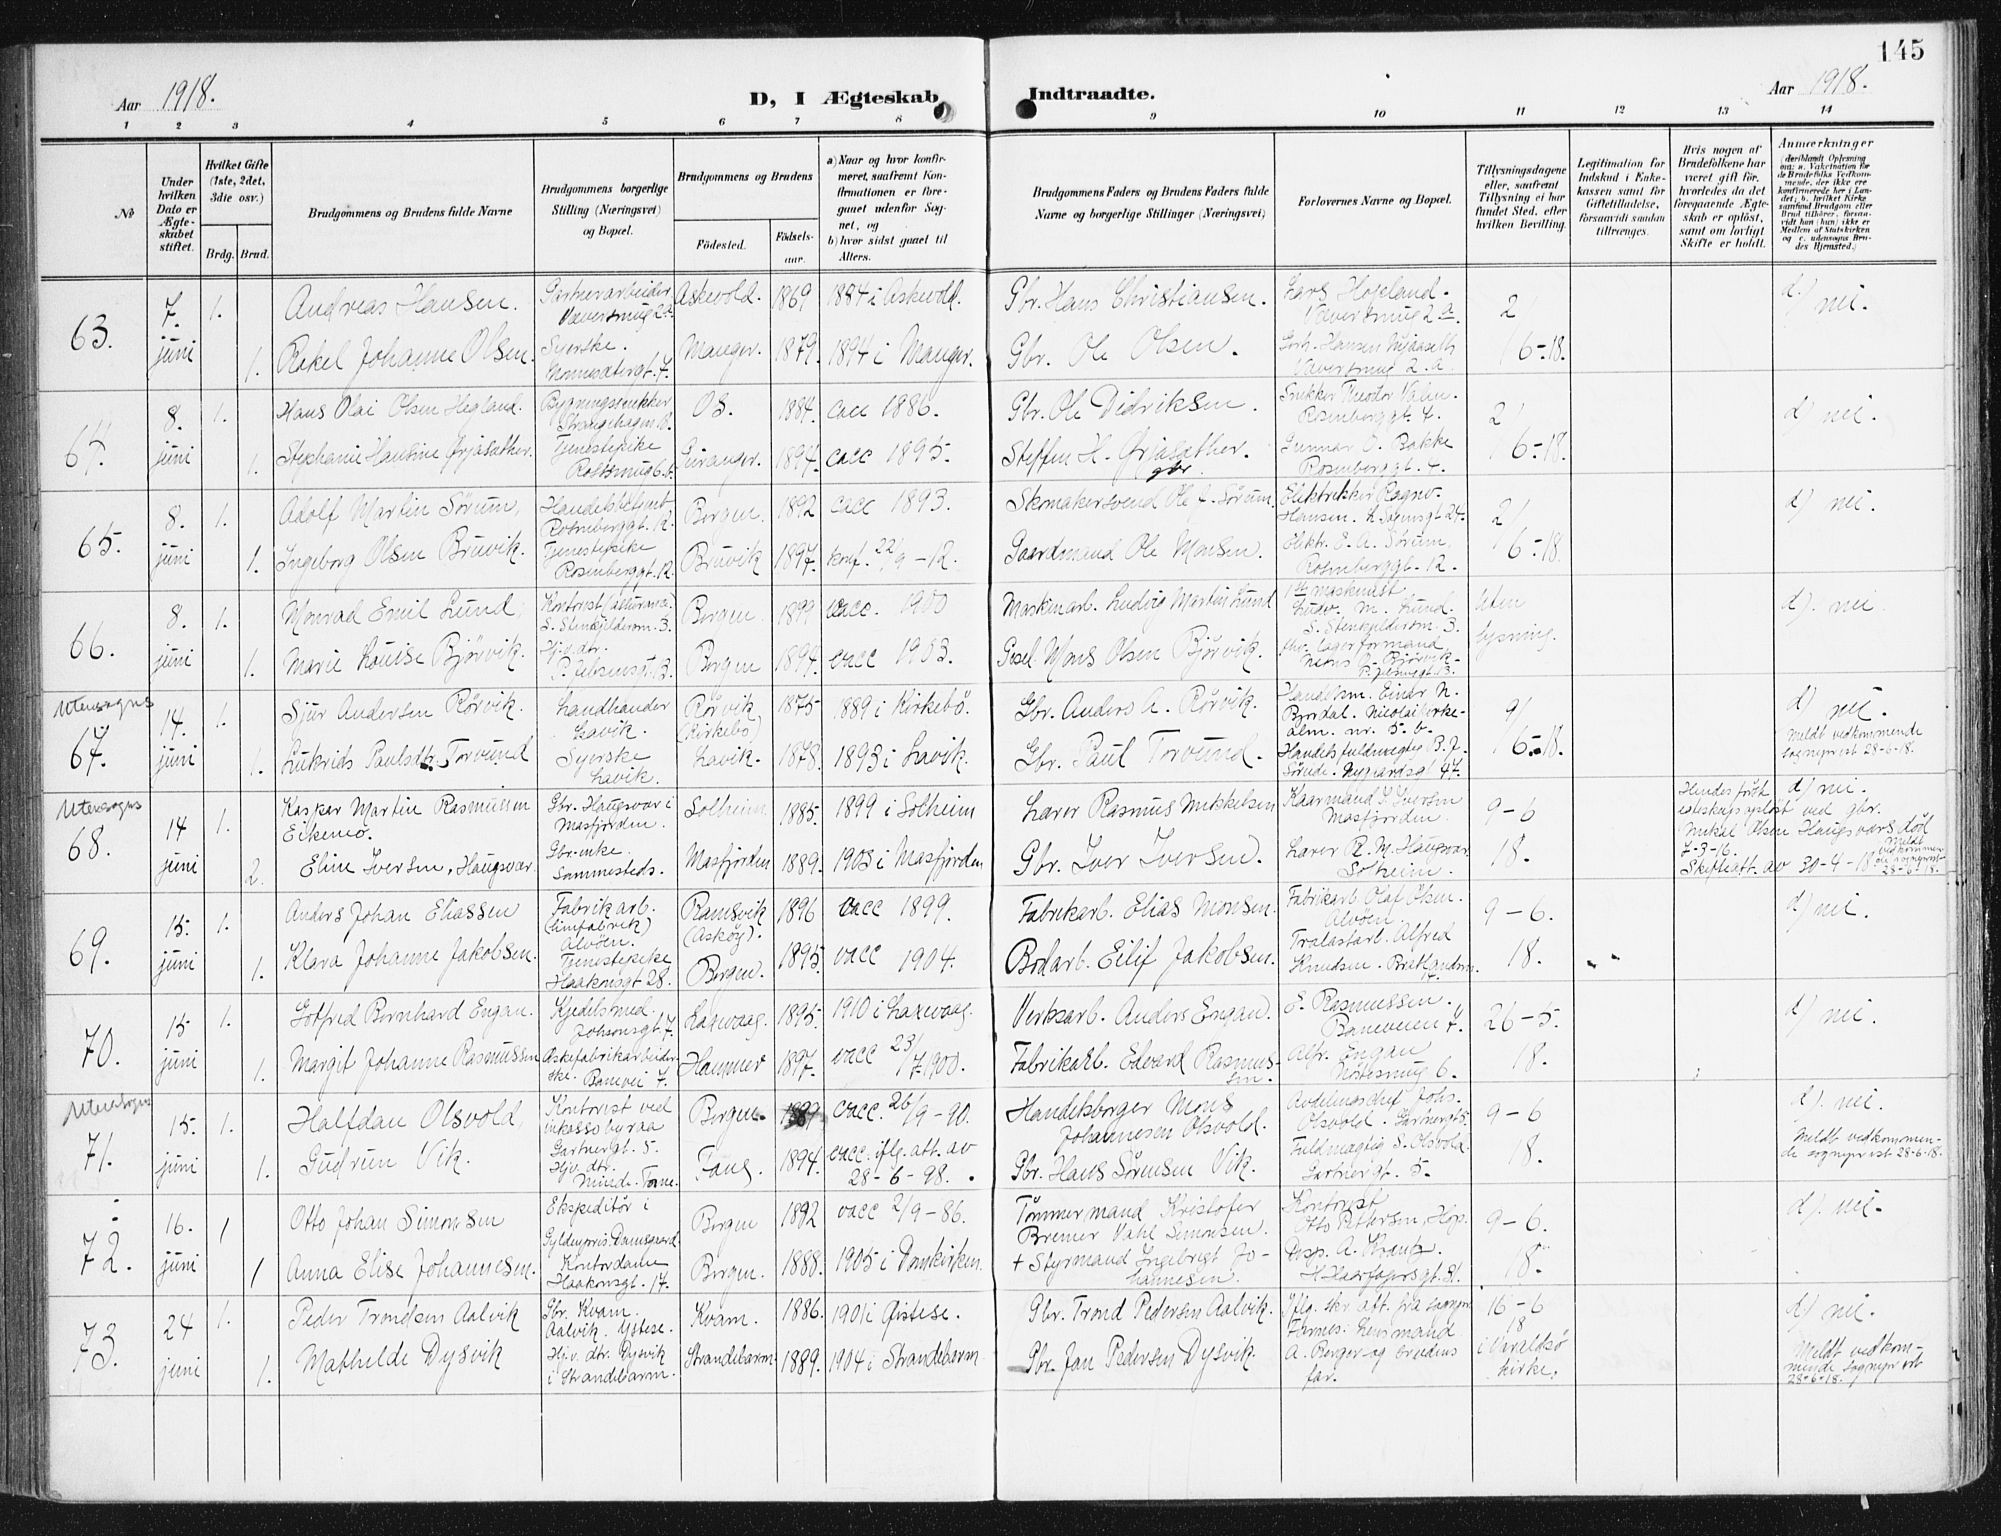 145
Aar 1918.
D, I Ægteskab Indtraadte.
Aar 1918.
1 2 3 4 5 6 7 8 9 10 11 12 13 14
No
Under hvilken Dato er Ægteskabet stiftet.
Hvilket Gifte (1ste, 2det, 3die osv.)
Brdg. Brud.
Brudgommens og Brudens fulde Navne
Brudgommens borgerlige Stilling (Næringsvei) og Bopæl.
Brudgommens og Brudens
Födested.
Födselsaar.
a) Naar og hvor konfirmeret, saafremt Konfirmationen er foregaaet udenför Sognet, og
b) hvor sidst gaaet til Alters.
Brudgommens Faders og Brudens Faders fulde Navne og borgerlige Stillinger (Næringsvei)
Forlovernes Navne og Bopæl.
Tillysningsdagene eller, saafremt Tillysning ei har fundet Sted, efter hvilken Bevilling.
Legitimation for Indskud i Enkekassen samt för Giftetilladelse, forsaavidt saadan tiltrænges.
Hvis nogen af Brudefolkene har været gift för, hvorledes da det foregaaende Ægteskab er oplöst, samt om lovligt Skifte er holdt.
Anmærkninger
63. 7. juni
1. Andreas Hansen. Gartnerarbeider Væversmug 2 a. Askevold. 1869 1884 i Askevold. Gbr. Hans Christiansen. Lars Hopeland. Væversmug 2 a. 2/6-18. d.) nei.
1. Rakel Johanne Olsen. Syerske. Manger. 1879. 1894 i Manger. Gbr. Ole Olsen.
64. 8. juni
1. Hans Olai Olsen Hegland. Bygningssnekker Strangehagen Os. 1884. vacc 1886. Gbr. Ole Didriksen. Snekker Teodor Valen. Rosenberggt. 4. 2/6-18. d) nei.
1. Stephanie Hansine Ørjasæther. Tjenestepike Geiranger. 1894. vacc 1895. Steffen H. Ørjasæther. gbr. Gunnar O. Bakke Rosenberggt. 4.
65. 8. juni
1. Adolf Martin Sörum, Handelsbetjent Rosenberggt. 12. Bergen. 1892 vacc 1893. Skomakersvend Ole J. Sörum. Elektrikker Ragnv. Hansen. 2/6-18. d) nei.
1. Ingeborg Olsen Bruvik. Tjenestepike Rosenberggt. 12. Bruvik 1897. konf. 22/9-12. Gaardmand Ole Monsen. Elektr. E. A. Sörum, Rosenberggt. 12.
66. 8. juni
1. Monrad Emil Lund, Bergen 1899 vacc. 1900 Maskinarb. Ludvig Martin Lund 1ste maskinist Ludv. M. Lund. S. Stenkjelderom. 3. Uten lysning. d). nei
1. Marie Louise Björvik. Hj.v. dtr. Bergen 1894. vacc 1903. Gesel. Mons Olsen Björvik.
Utensogns
67. 14. juni
1. Sjur Andersen Rörvik. Landhandler Lavik. Rörvik (Kirkebö) 1875 1889 i Kirkebö. Gbr. Anders A. Rörvik. Handelsm. Einar N. Brordal. Nicolaikirkealm. nr. 5. b. 9/6-18. d) nei. Meldt vedkommende sogneprest 28-6-18.
1. Lukrids Paulsdtr. Torvund Syerske Lavik. Lavik. 1878. 1893 i Lavik. Gbr. Paul Torvund. Handelsfuldmægtig B. J. Sörude. Nygaardsgt 47.
Utensogns
68. 14 juni
1. Kaspar Martin Rasmussen Eikemo. Gbr. Haugsvær i Masfjorden. Solheim. 1885. 1899 i Solheim Lærer Rasmus Mikkelsen Kaarmand I. Iversen Masfjorden. 9-6 18. Hendes först egteskap oplöst ved gbr. Mikal Olsen Haugsværs död 7-3-16. Skifteatt. av 30-4-18. d) nei. Meldt vedkommende sogneprest 28-6-18.
2. Eline Iversen, Haugsvær. Gbr.enke. Sammesteds. Masfjorden 1889. 1903 i Masfjorden Gbr. Iver Iversen. Lærer R. M. Haugsvær Solheim.
69. 15 juni
1. Anders Johan Eliassen Fabrikarb. (limfabrik) Alvöen. Ramsvik (Asköy). 1896 vacc 1899. Fabrikarb. Elias Monsen. Fabrikarb. Olaf Olsen. Alvöen. 9-6. 18. d) nei.
1. Klara Johanne Jakobsen. Tjenestepike Haakonsgt 28. Bergen. 1895. vacc 1904. Bodarb. Eilif Jakobsen. Trælastarb. Alfred Knudsen.
70. 15 juni
1. Gotfred Bernhard Engan. Kjedelsmed. Laxevaag. 1895. 1910 i Laxevaag. Verksarb. Anders Engan. E. Rasmussen. Baneveien 7. 26-5. 18. d) nei.
1. Margit Johanne Rasmussen Æskefabrikarbeiderske. Banevei 7. Hammer 1897. vacc 23/7 1900. Fabrikarb. Edvard Rasmussen. Alfr. Engan Nöstesmug 6.
Utensogns
71. 15. juni
1. Halfdan Olsvold, Kontorist ved inkassobyraa Gartnergt. 5. Bergen. vacc. 26/9-90. Handelsborger Mons Johannesen Olsvold. Avdelingschef Johs. Olsvold. Gartnergt 5. 9-6 18. d). nei. Meldt vedkommende sogneprest 28-6-18.
1. Gudrun Vik. Hj.v. dtr. Minde. Fane. Fane. 1894. vacc. iflg. att. av 28-6-98. Gbr. Hans Sörensen Vik. Fuldmægtig S. Olsvold. Gartnergt. 5.
72. 16. juni
1 Otto Johan Simonsen Ekspeditör i Gyldenpris Damsgaard Bergen 1892 vacc 2/9-86. Tömmermand Kristofer Bremer Vahl Simonsen. Kontorist Otto Pettersen, Hop. 9-6. 18. d). nei.
1 Anna Elise Johannesen. Kontordame Haakonsgt. 17. Bergen. 1888. 1905 i Domkirken. + Styrmand Ingebrigt Johannesen. Desp. A. Krantz. H. Haarfagersgt. 21.
73. 24 juni
1. Peder Trondsen Aalvik Gbr. Kvam. Aalvik. Östese. Kvam. 1886. 1901 i Östese. Gbr. Trond Pedersen Aalvik. Iflg. skr. att. fra sognepr. Farnes: Lensmand A. Berger og brudens far. 16-6 18 i Varaldsö kirke. d) nei. Meldt vedkommende sogneprest 28-6-18.
1. Mathilde Dysvik Hj.v. dtr. Dysvik i Strandebarm. Strandebarm 1889. 1904 i Strandebarm Gbr. Jan Pedersen Dysvik.